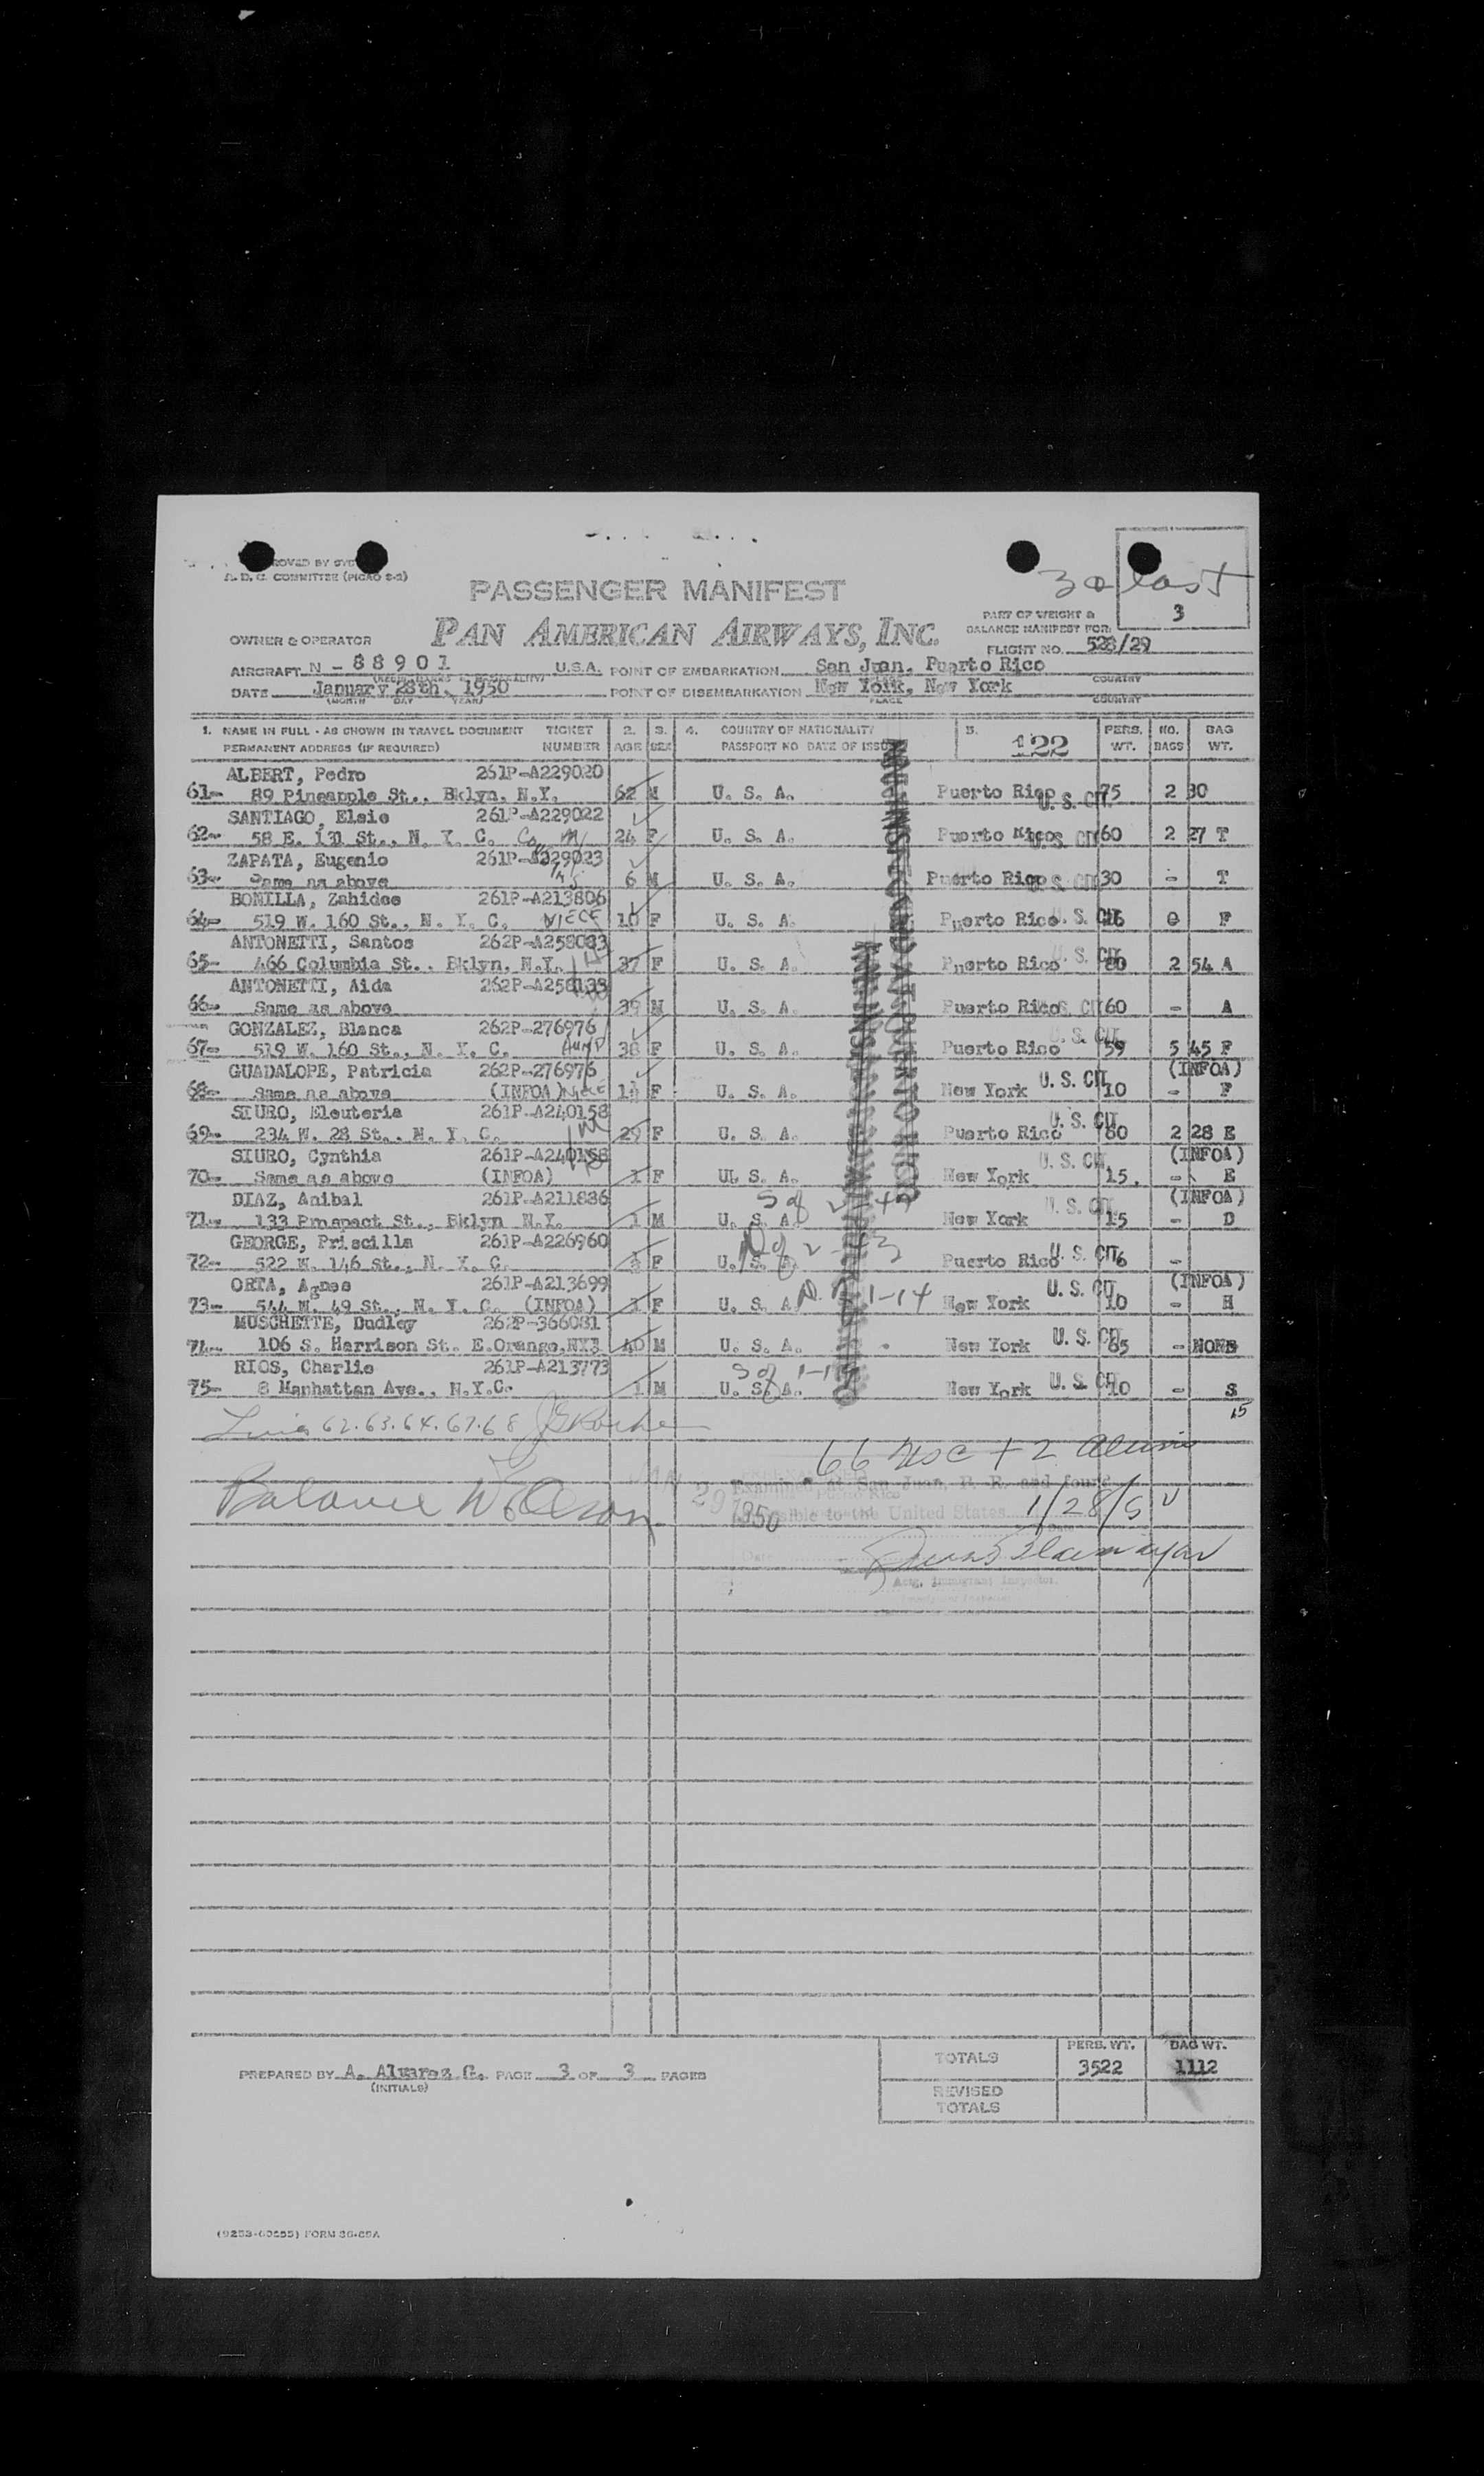 ROVED BY
A. D. C. COMMITTEE (PICAO S-2)
PASSENGER MANIFEST
30 last
3
PART OF WEIGHT &
BALANCE MANIFEST FOR:
OWNER & OPERATOR PAN AMERICAN AIRWAYS, INC.
FLIGHT NO. 528/29
AIRCRAFT N - 88901 U.S.A. POINT OF EMBARKATION San Juan, Puerto Rico
COUNTRY
DATE January 28th, 1950 POINT OF DISEMBARKATION New York, New York
(MONTH DAY YEAR) PLACE COUNTRY
1. NAME IN FULL - AS SHOWN IN TRAVEL DOCUMENT TICKET 2. 3. 4. COUNTRY OF NATIONALITY 5. 122 PERS. NO. BAG
PERMANENT ADDRESS (IF REQUIRED) NUMBER AGE SEX PASSPORT NO DATE OF ISSUE WT. BAGS WT.
ALBERT, Pedro 261P-A229020
61- 89 Pineapple St., Bklyn, N.Y. 62 M U. S. A. Puerto Rico U. S. CIT. 75 2 30
SANTIAGO, Elsie 261P-A229022
62- 58 E. 131 St., N. Y. C. 24 F U. S. A. Puerto Rico U. S. CIT 60 2 27 T
ZAPATA, Eugenio 261P-A229023
63- Same as above 6 M U. S. A. Puerto Rico U. S. CIT 30 - T
BONILLA, Zahidee 261P-A213806
64- 519 W. 160 St., N. Y. C. NIECE 10 F U. S. A. Puerto Rico U. S. CIT 0 F
ANTONETTI, Santos 262P-A258083
65- 466 Columbia St., Bklyn, N.Y. 37 F U. S. A. Puerto Rico U. S. CIT 80 2 54 A
ANTONETTI, Aida 262P-A258133
66- Same as above 39 M U. S. A. Puerto Rico U. S. CIT 60 - A
GONZALEZ, Blanca 262P-276976
67- 519 W. 160 St., N. Y. C. Aunt 38 F U. S. A. Puerto Rico U. S. CIT. 59 5 45 F
GUADALOPE, Patricia 262P-276976 (INFOA)
68- Same as above (INFOA) Niece F U. S. A. New York U. S. CIT 10 - F
SIURO, Eleuteria 261P-A240158
69- 234 W. 28 St., N. Y. C. 29 F U. S. A. Puerto Rico U. S. CIT 60 2 28 E
SIURO, Cynthia 261P-A240158 (INFOA)
70- Same as above (INFOA) 1 F U. S. A. New York U. S. CIT. 15 - E
DIAZ, Anibal 261P-A211886 S of 2-47 (INFOA)
71- 133 Prospect St., Bklyn N.Y. 1 M U. S. A. New York U. S. CIT. 15 - D
GEORGE, Priscilla 261P-A226960 D of 2-43
72- 522 W. 146 St., N. Y. C. F U. S. A. Puerto Rico U. S. CIT 6 -
ORTA, Agnes 261P-A213699 (INFOA)
73- 544 W. 49 St., N. Y. C. (INFOA) 1 F U. S. A. 1-14 New York U. S. CIT 10 - H
MUSCHETTE, Dudley 262P-366081
74- 106 S. Harrison St. E.Orange,NYJ 40 M U. S. A. New York U. S. CIT 65 - NONE
RIOS, Charlie 261P-A213773 S of
75- 8 Manhattan Ave., N.Y.C. 1 M U. S. A. New York U. S. CIT 10 - S
15
62.63.64.67.68
66 USC + 2 aliens
Examined at San Juan, P. R. and found
JAN 29 1950 admissible to the United States 1/28/50
Balance
Date
Actg. Immigrant Inspector
PREPARED BY A. Alvarez G. PAGE 3 OF 3 PAGES
(INITIALS)
PERS. WT. BAG WT.
TOTALS 3522 1112
REVISED
TOTALS
FORM 36-25A